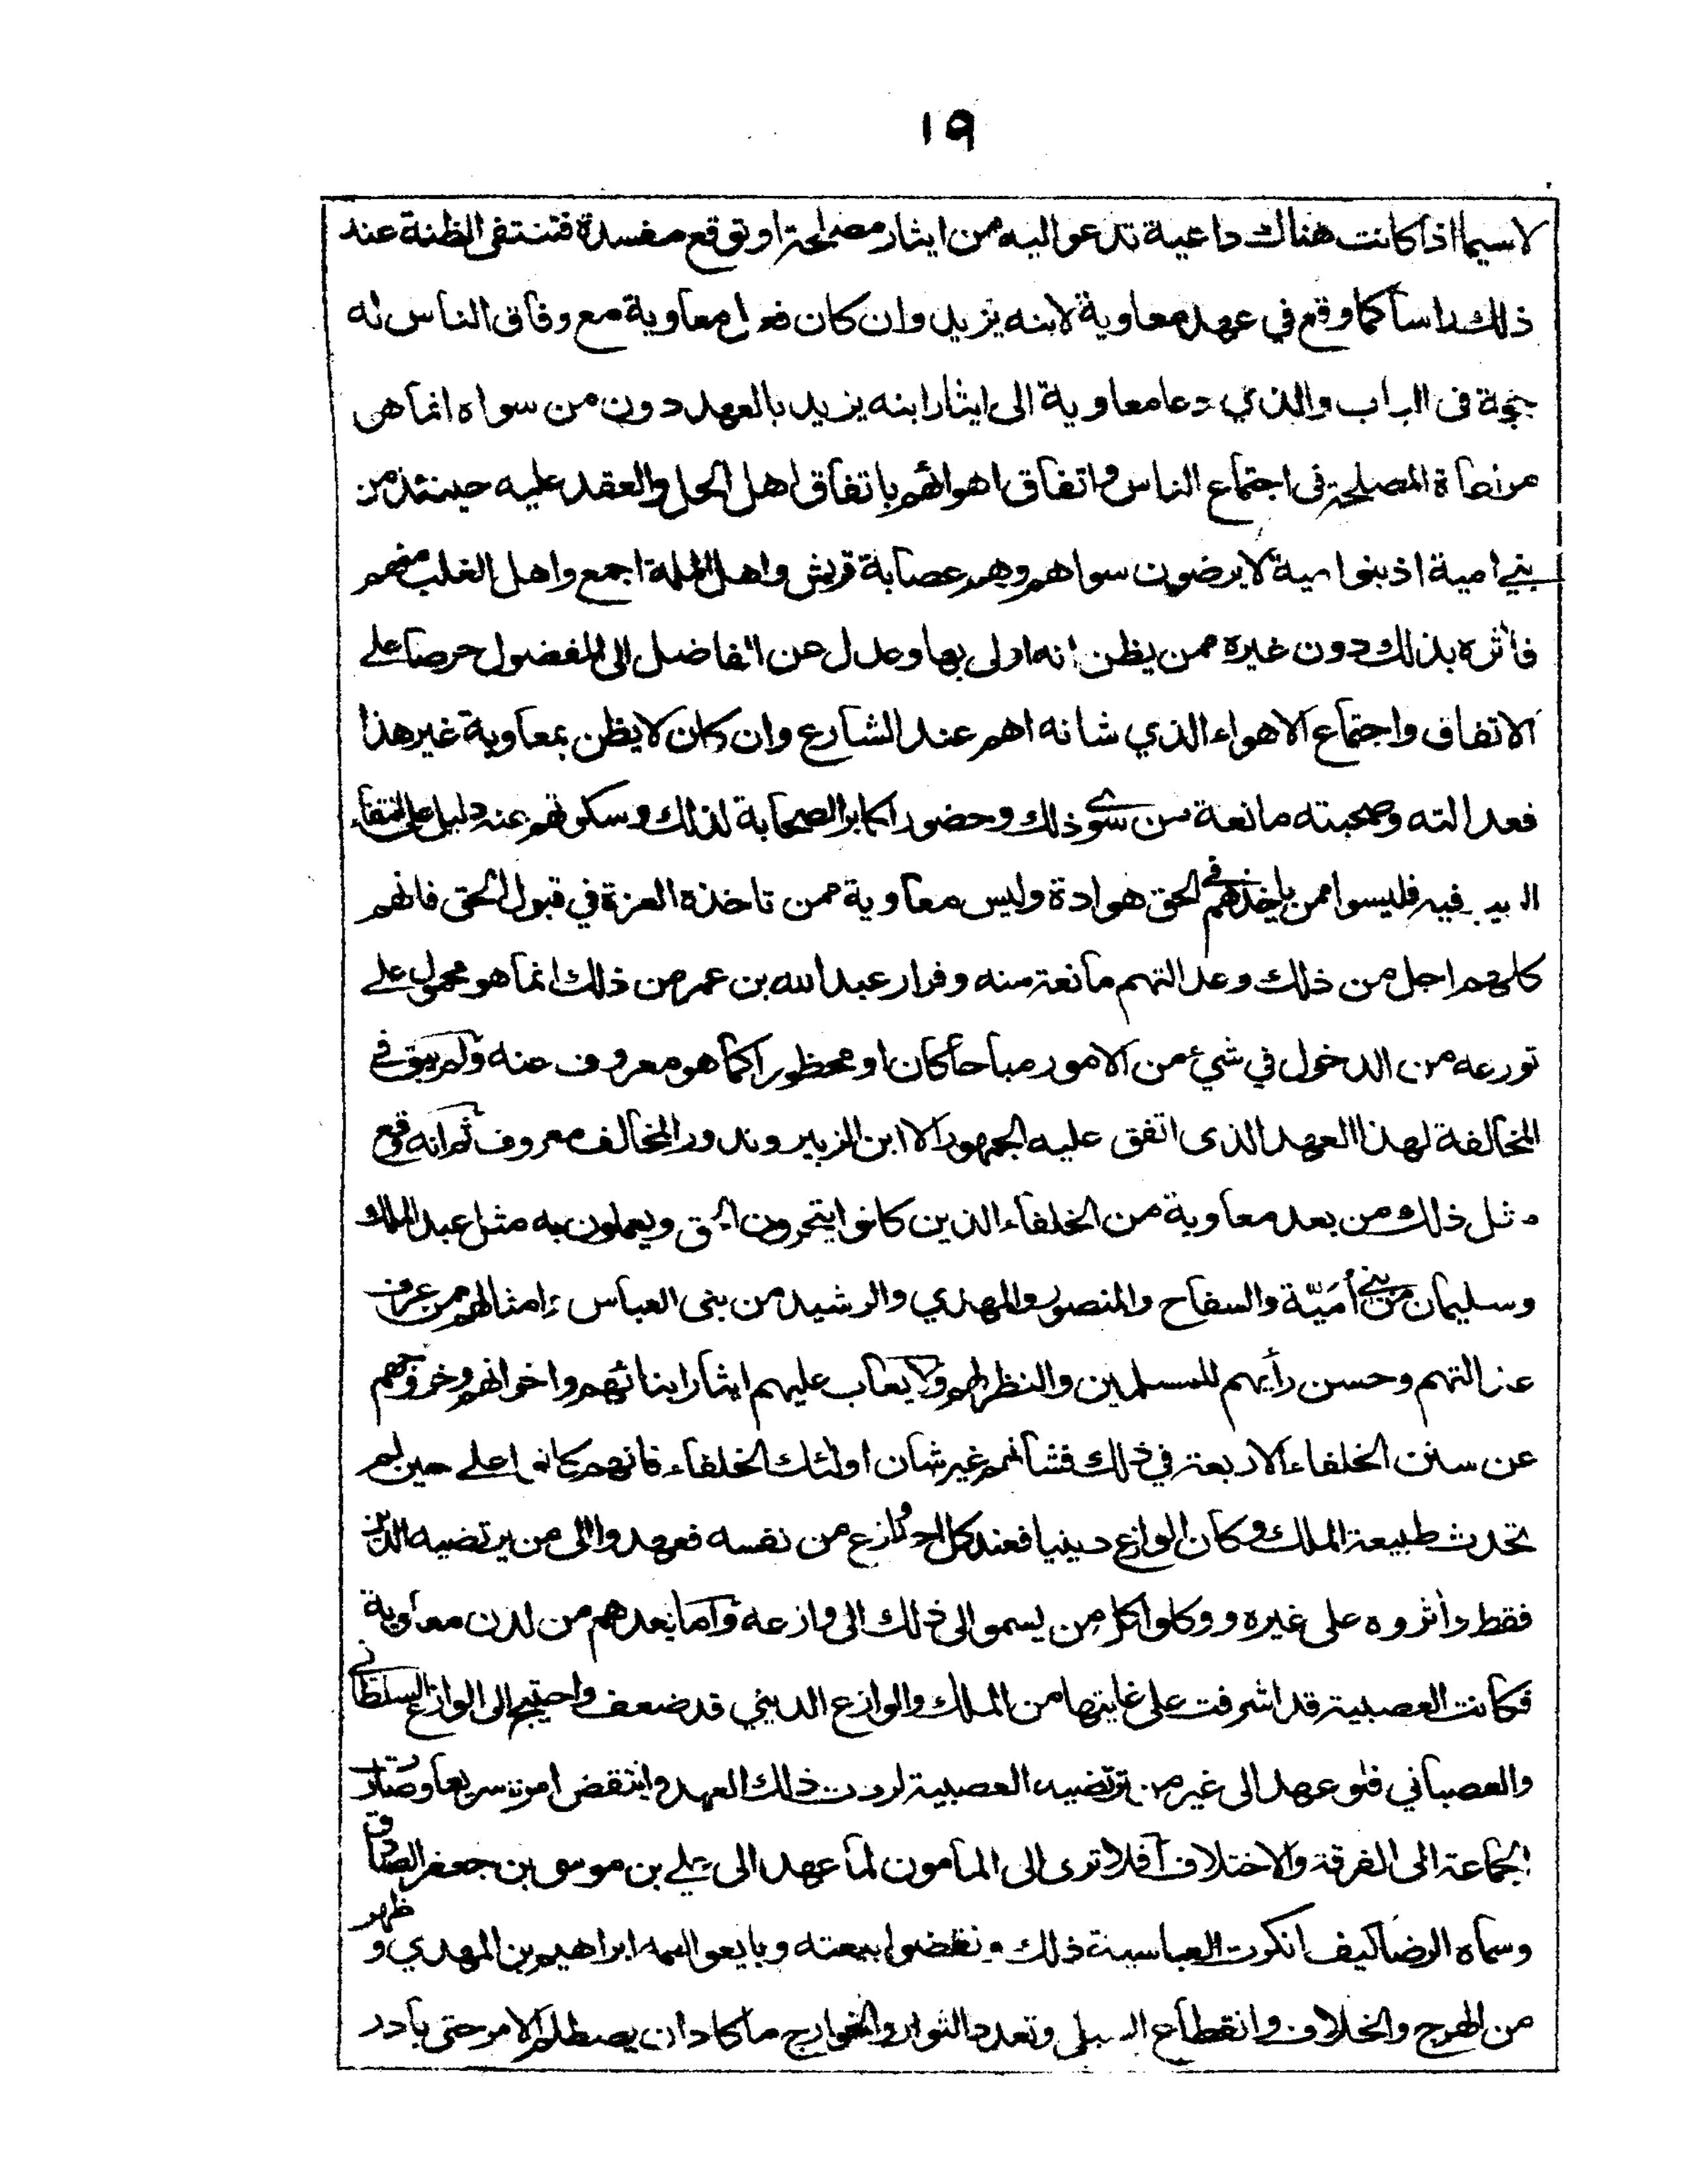 ١٩
لاسيما اذا كانت هناك داعية تدعو اليه من ايثار مصلحة او توقع مفسدة فتنتفى الظنة عند
ذلك راسا كما وقع في عهد معاوية لابنه يزيد وان كان فعل معاوية مع وفاق الناس له
حجة فى الباب والذي دعا معاوية الى ايثار ابنه يزيد بالعهد دون من سواه انما هى
مراعاة المصلحة فى اجتماع الناس واتفاق اهوائهم باتفاق اهل الحل والعقد عليه حينئذ من
بني امية اذ بنو امية لا يرضون سواهم وهم عصابة قريش واهل الملة اجمع واهل الغلب منهم
فاثره بذلك دون غيره ممن يظن انه اولى بها وعدل عن الفاضل الى المفضول حرصا على
الاتفاق واجتماع الاهواء الذي شانه اهم عند الشارع وان كان لا يظن بمعاوية غير هذا
فعدالته وصحبته مانعة من سوى ذلك وحضور اكابر الصحابة لذلك وسكوتهم عنه دليل على انتفاء
الريب فيه فليسوا ممن ياخذهم في الحق هوادة وليس معاوية ممن تاخذه العزة في قبول الحق فانهم
كلهم اجل من ذلك وعدالتهم مانعة منه وفرار عبدالله بن عمر من ذلك انما هو محمول على
تورعه من الدخول في شيء من الامور مباحا كان او محظورا كما هو معروف عنه ولم يبق في
المخالفة لهذا العهد الذى اتفق عليه الجمهور الا ابن الزبير وندور المخالف معروف ثم انه وقع
مثل ذلك من بعد معاوية من الخلفاء الذين كانوا يتحرون الحق ويعملون به مثل عبد الملك
وسليمان من بني أميّة والسفاح والمنصور والمهدي والرشيد من بنى العباس وامثالهم ممن عرف
عدالتهم وحسن رأيهم للمسلمين والنظر لهم ولا يعاب عليهم ايثار ابنائهم واخوانهم وخروجهم
عن سنن الخلفاء الاربعة في ذلك فشانهم غير شان اولئك الخلفاء فانهم كانوا على حين لم
تحدث طبيعة الملك وكان الوازع دينيا فعند كل احد وازع من نفسه فعهدوا الى من يرتضيه الدين
فقط واثروه على غيره ووكلوا كل من يسموا الى ذلك الى وازعه واما بعدهم من لدن معاوية
فكانت العصبية قد اشرفت على غايتها من الملك والوازع الديني قد ضعف واحتيج الى الوازع السلطاني
والعصباني فلو عهد الى غير من ترتضيه العصبية لردت ذلك العهد وانتقض امره سريعا وصارت
الجماعة الى الفرقة والاختلاف افلا ترى الى المامون لما عهد الى علي بن موسى بن جعفر الصادق
وسماه الرضا كيف انكرت العباسية ذلك ونقضوا بيعته وبايعوا لعمه ابراهيم بن المهدي وظهر
من الهرج والخلاف وانقطاع السبل وتعدد الثوار والخوارج ما كاد ان يصطلم الامر حتى بادر